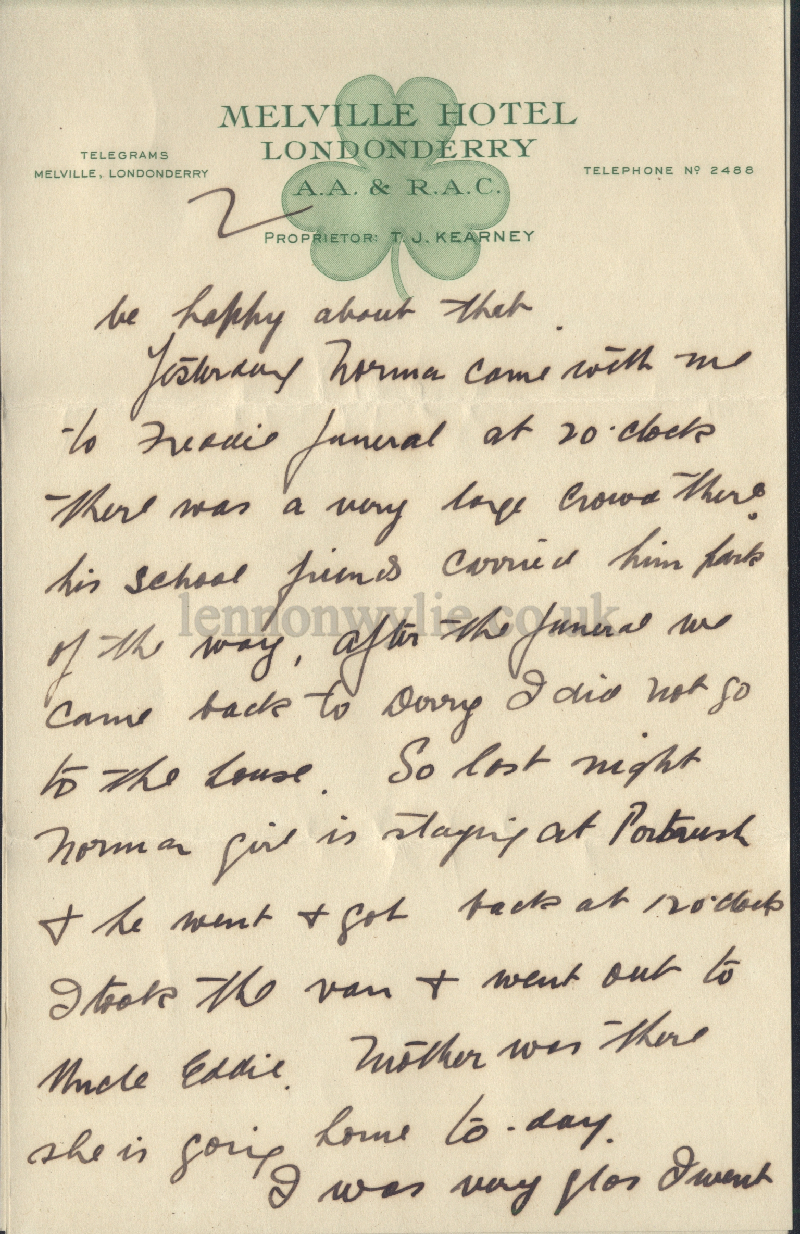 MELVILLE HOTEL
LONDONDERRY
TELEGRAMS
MELVILLE, LONDONDERRY
A.A. & R.A.C.
TELEPHONE Nº 2488
PROPRIETOR: T. J. KEARNEY
2
be happy about that.
Yesterday Norman came with me
to Freddie funeral at 2 o'clock
there was a very large crowd there.
his school friends carried him part
of the way, after the funeral we
came back to Derry I did not go
to the house. So last night
Norman girl is staying at Portrush
& he went & got back at 12 o'clock
I took the van & went out to
Uncle Eddie. Mother was there
she is going home to-day.
I was very glad I went
lennonwylie.co.uk